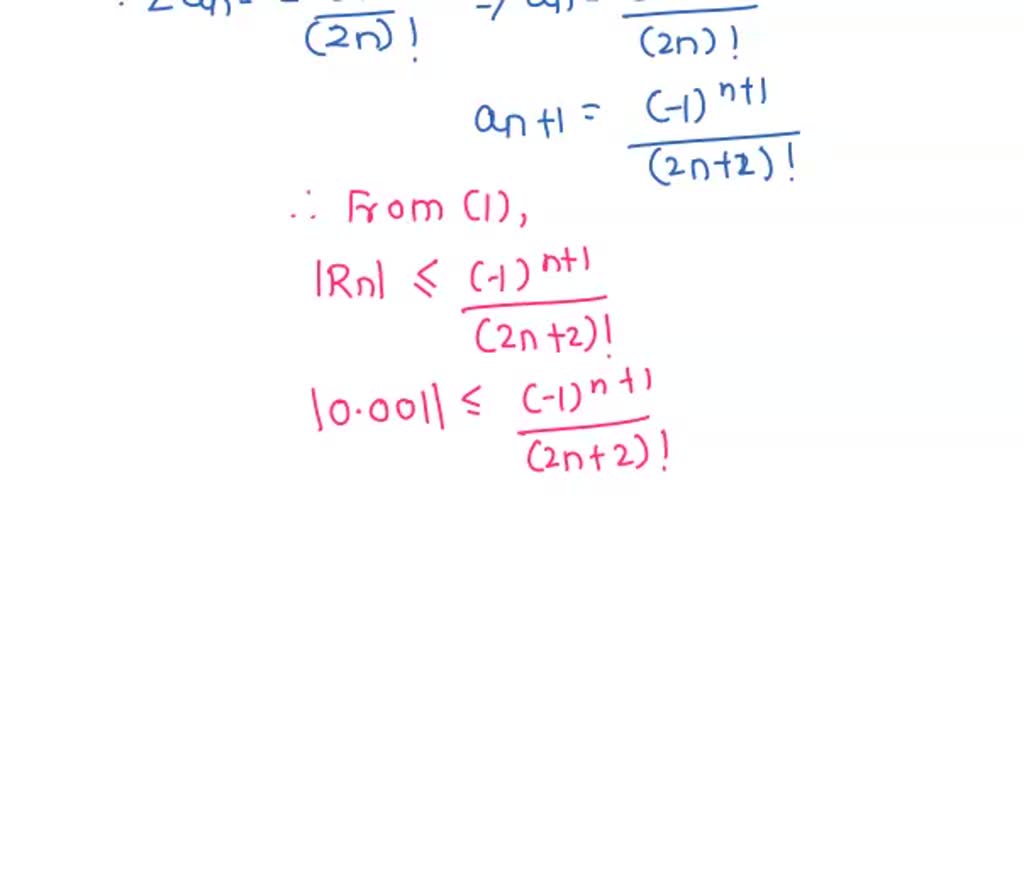 (2n)! (2n)!
an+1 = (-1)^n+1 / (2n+2)!
∴ From (1),
|Rn| ≤ (-1)^n+1 / (2n+2)!
|0.001| ≤ (-1)^n+1 / (2n+2)!